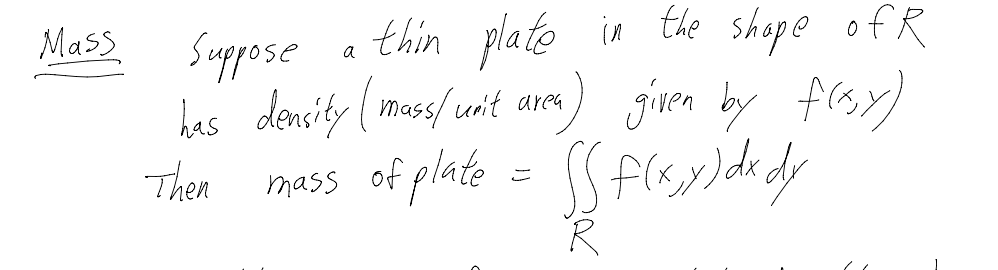 Mass Suppose a thin plate in the shape of R
has density (mass/unit area) given by f(x,y)
Then mass of plate = ∬ f(x,y) dx dy
R